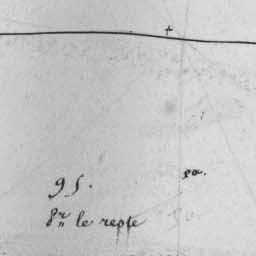 +
95. 50.
8.r le reste